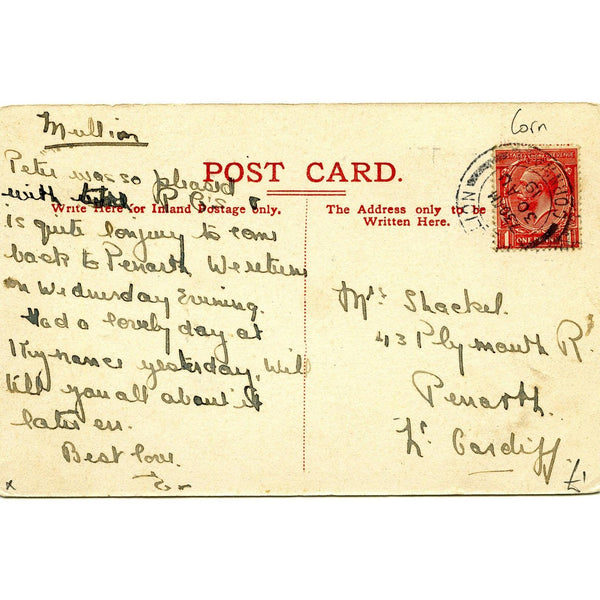 Mullion
Corn
Peter was so pleased
with P.C's &
is quite longing to come
back to Penarth We return
on Wednesday Evening.
Had a lovely day at
Kynance yesterday, will
tell you all about it
later on.
Best love.
POST CARD.
Write Here for Inland Postage only.
The Address only to be
Written Here.
ONE PENNY
Mrs Shackel.
43 Plymouth R.
Penarth.
Nr. Cardiff
£1
x